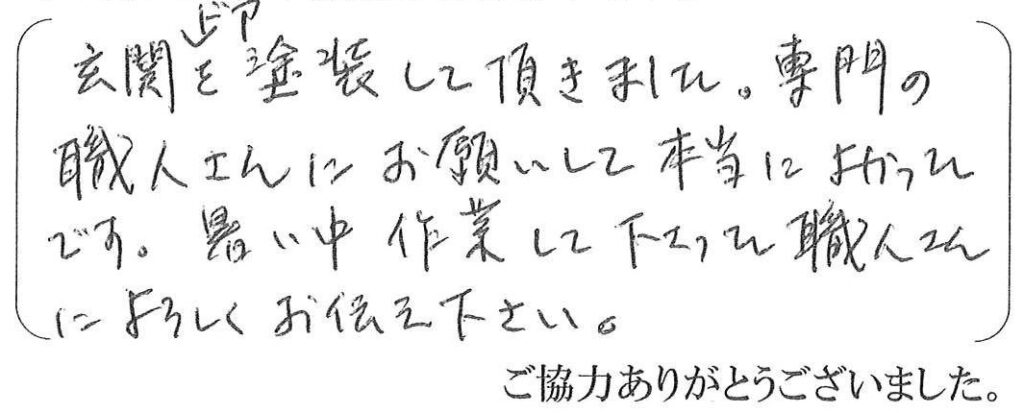 玄関ドアを塗装して頂きました。専門の
職人さんにお願いして本当によかった
です。暑い中作業して下さった職人さん
によろしくお伝え下さい。
ご協力ありがとうございました。